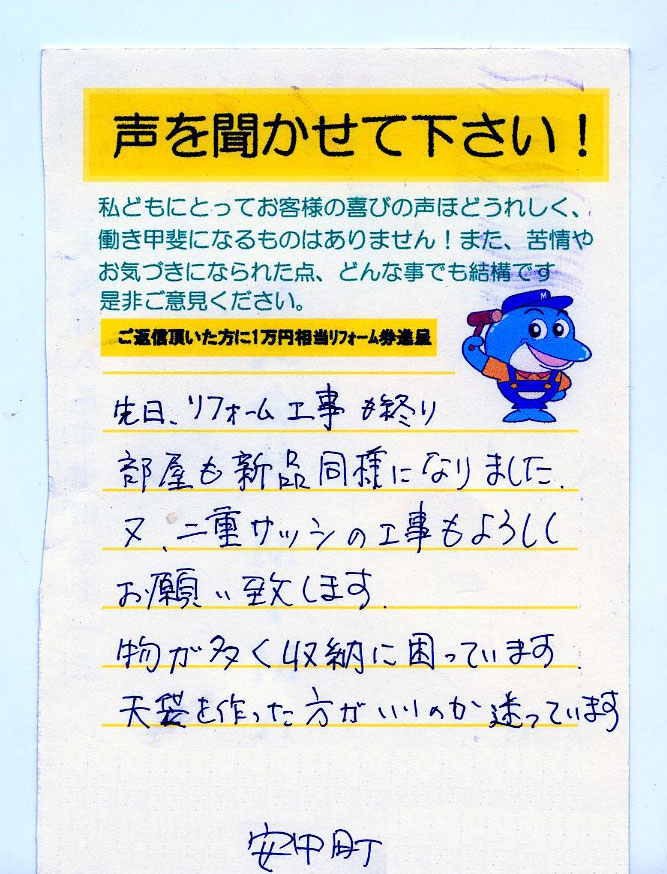 声を聞かせて下さい！
私どもにとってお客様の喜びの声ほどうれしく、
働き甲斐になるものはありません！また、苦情や
お気づきになられた点、どんな事でも結構です
是非ご意見ください。
ご返信頂いた方に1万円相当リフォーム券進呈
M
先日、リフォーム工事も終り
部屋も新品同様になりました.
又、二重サッシの工事もよろしく
お願い致します.
物が多く収納に困っています.
天袋を作った方がいいのか迷っています
安中町